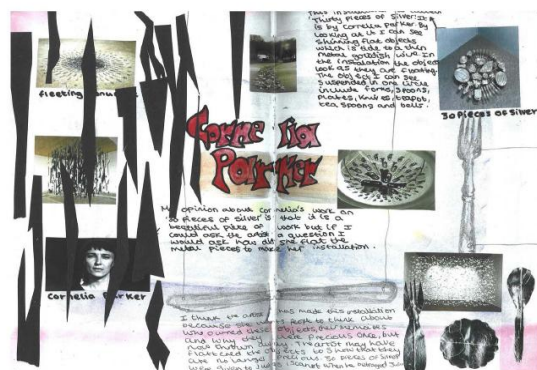 Thirty pieces of silver. It
is by Cornelia Parker By
Looking at it I can see
shinning flat objects
which is tide to a then
metal goldish wire. In
the installation the objects
look as they are floating.
The object I can see
suspended in one circle
include forks, spoons,
plates, knives, teapot,
tea spoons and bells.
fleeting
30 Pieces of Silver
Cornelia
Parker
My opinion about Cornelia's work on
30 pieces of silver is that it is a
beautiful piece of work but if I
could ask the artist a question I
would ask how did she flat the
metal pieces to make her installation.
Cornelia Parker
I think the artist has made this installation
because she wants people to think about
why owned these objects, their memories
and why they were precious once, but
was thrown away. The artist may have
flattened the objects to show that they
are no longer precious. 30 pieces of silver
were given to Judas when he betrayed